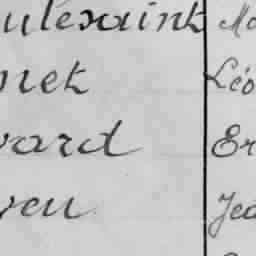 ulesaint Ma
net Léo
vard Er
ven Jea